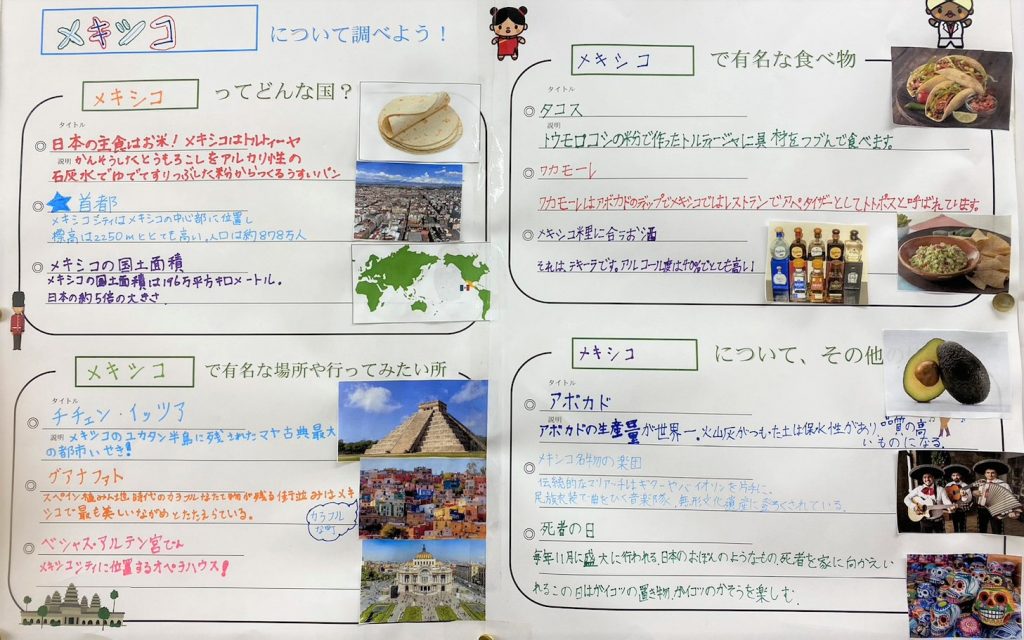 メキシコ について調べよう!
メキシコ ってどんな国?
タイトル
◎日本の主食はお米! メキシコはトルティーヤ
説明 かんそうしたとうもろこしをアルカリ性の
石灰水でゆでてすりつぶした粉からつくるうすいパン
◎★首都
メキシコシティはメキシコの中心部に位置し
標高は2250mととても高い。人口は約878万人
◎メキシコの国土面積
メキシコの国土面積は196万平方キロメートル。
日本の約5倍の大きさ
メキシコ で有名な場所や行ってみたい所
タイトル
◎チチェン・イッツア
説明 メキシコのユカタン半島に残されたマヤ古典最大
の都市いせき!
◎グアナファト
スペイン植みん地時代のカラフルなたて物が残る街並みはメキ
シコで最も美しいながめとたたえらている。
カラフル
な町
◎ベジャス・アルテン宮でん
メキシコシティに位置するオペラハウス!
メキシコ で有名な食べ物
タイトル
◎タコス
説明
トウモロコシの粉で作ったトルティージャに具材をつつんで食べます
◎ワカモーレ
ワカモーレはアボカドのディップでメキシコではレストランでアペタイザーとしてトトポスと呼ばれています。
◎メキシコ料理に合うお酒
それは、テキーラです。アルコール度は40%でとても高い
メキシコ について、その他
タイトル
◎アボカド
説明
アボカドの生産量が世界一。火山灰がつもった土は保水性があり、品質の高
いものになる。
◎メキシコ名物の楽団
伝統的なマリアッチはギターやバイオリンを片手に、
民族衣装で曲をひく音楽隊、無形文化遺産に登ろくされている。
◎死者の日
毎年11月に盛大に行われる、日本のおぼんのようなもの。死者を家に向かえい
れるこの日はガイコツの置き物、ガイコツのかそうを楽しむ。